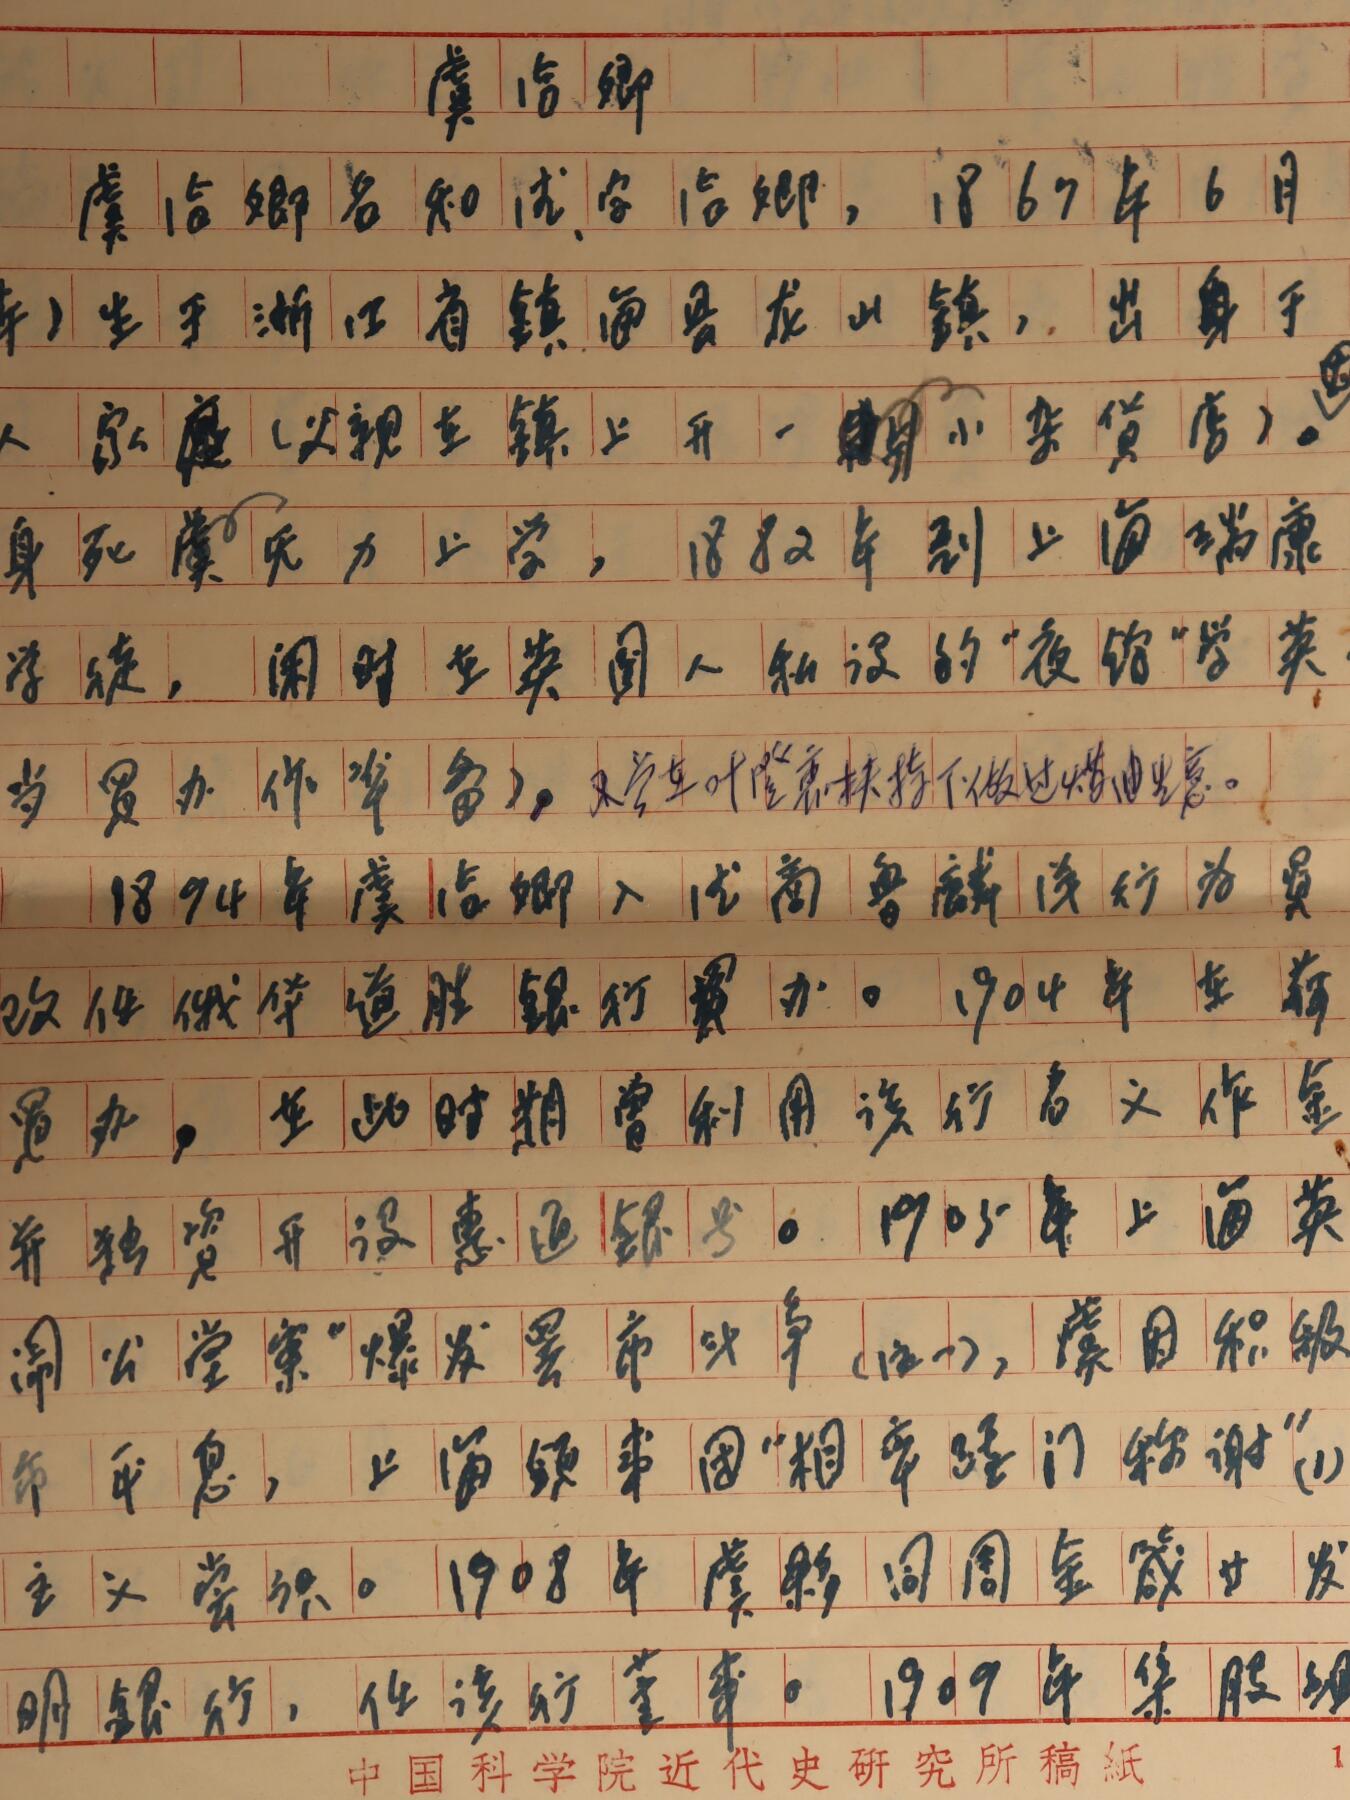 虞洽卿
虞洽卿名和德、字洽卿，1867年6月
年）生于浙江省镇海县龙山镇，出身于
人家庭（父親在镇上开一小杂货店）。因
身死虞无力上学，1882年到上海瑞康
学徒，闲时在英国人私设的"夜馆"学英
当買办作准备）。又尝在叶澄衷扶持下做过煤油生意。
1894年虞洽卿入德商鲁麟洋行为買
改任俄华道胜銀行買办。1904年在荷
買办，在此时期曾利用该行名义作金
并独资开设惠通銀号。1905年上海英
闹公堂案"爆发罢市斗争（注一），虞因积极
市平息，上海領事团"相率踵门称谢"(1)
主义赏识。1908年虞夥同周金箴廿发
明銀行，任该行董事。1909年集股组
中国科学院近代史研究所稿紙
1